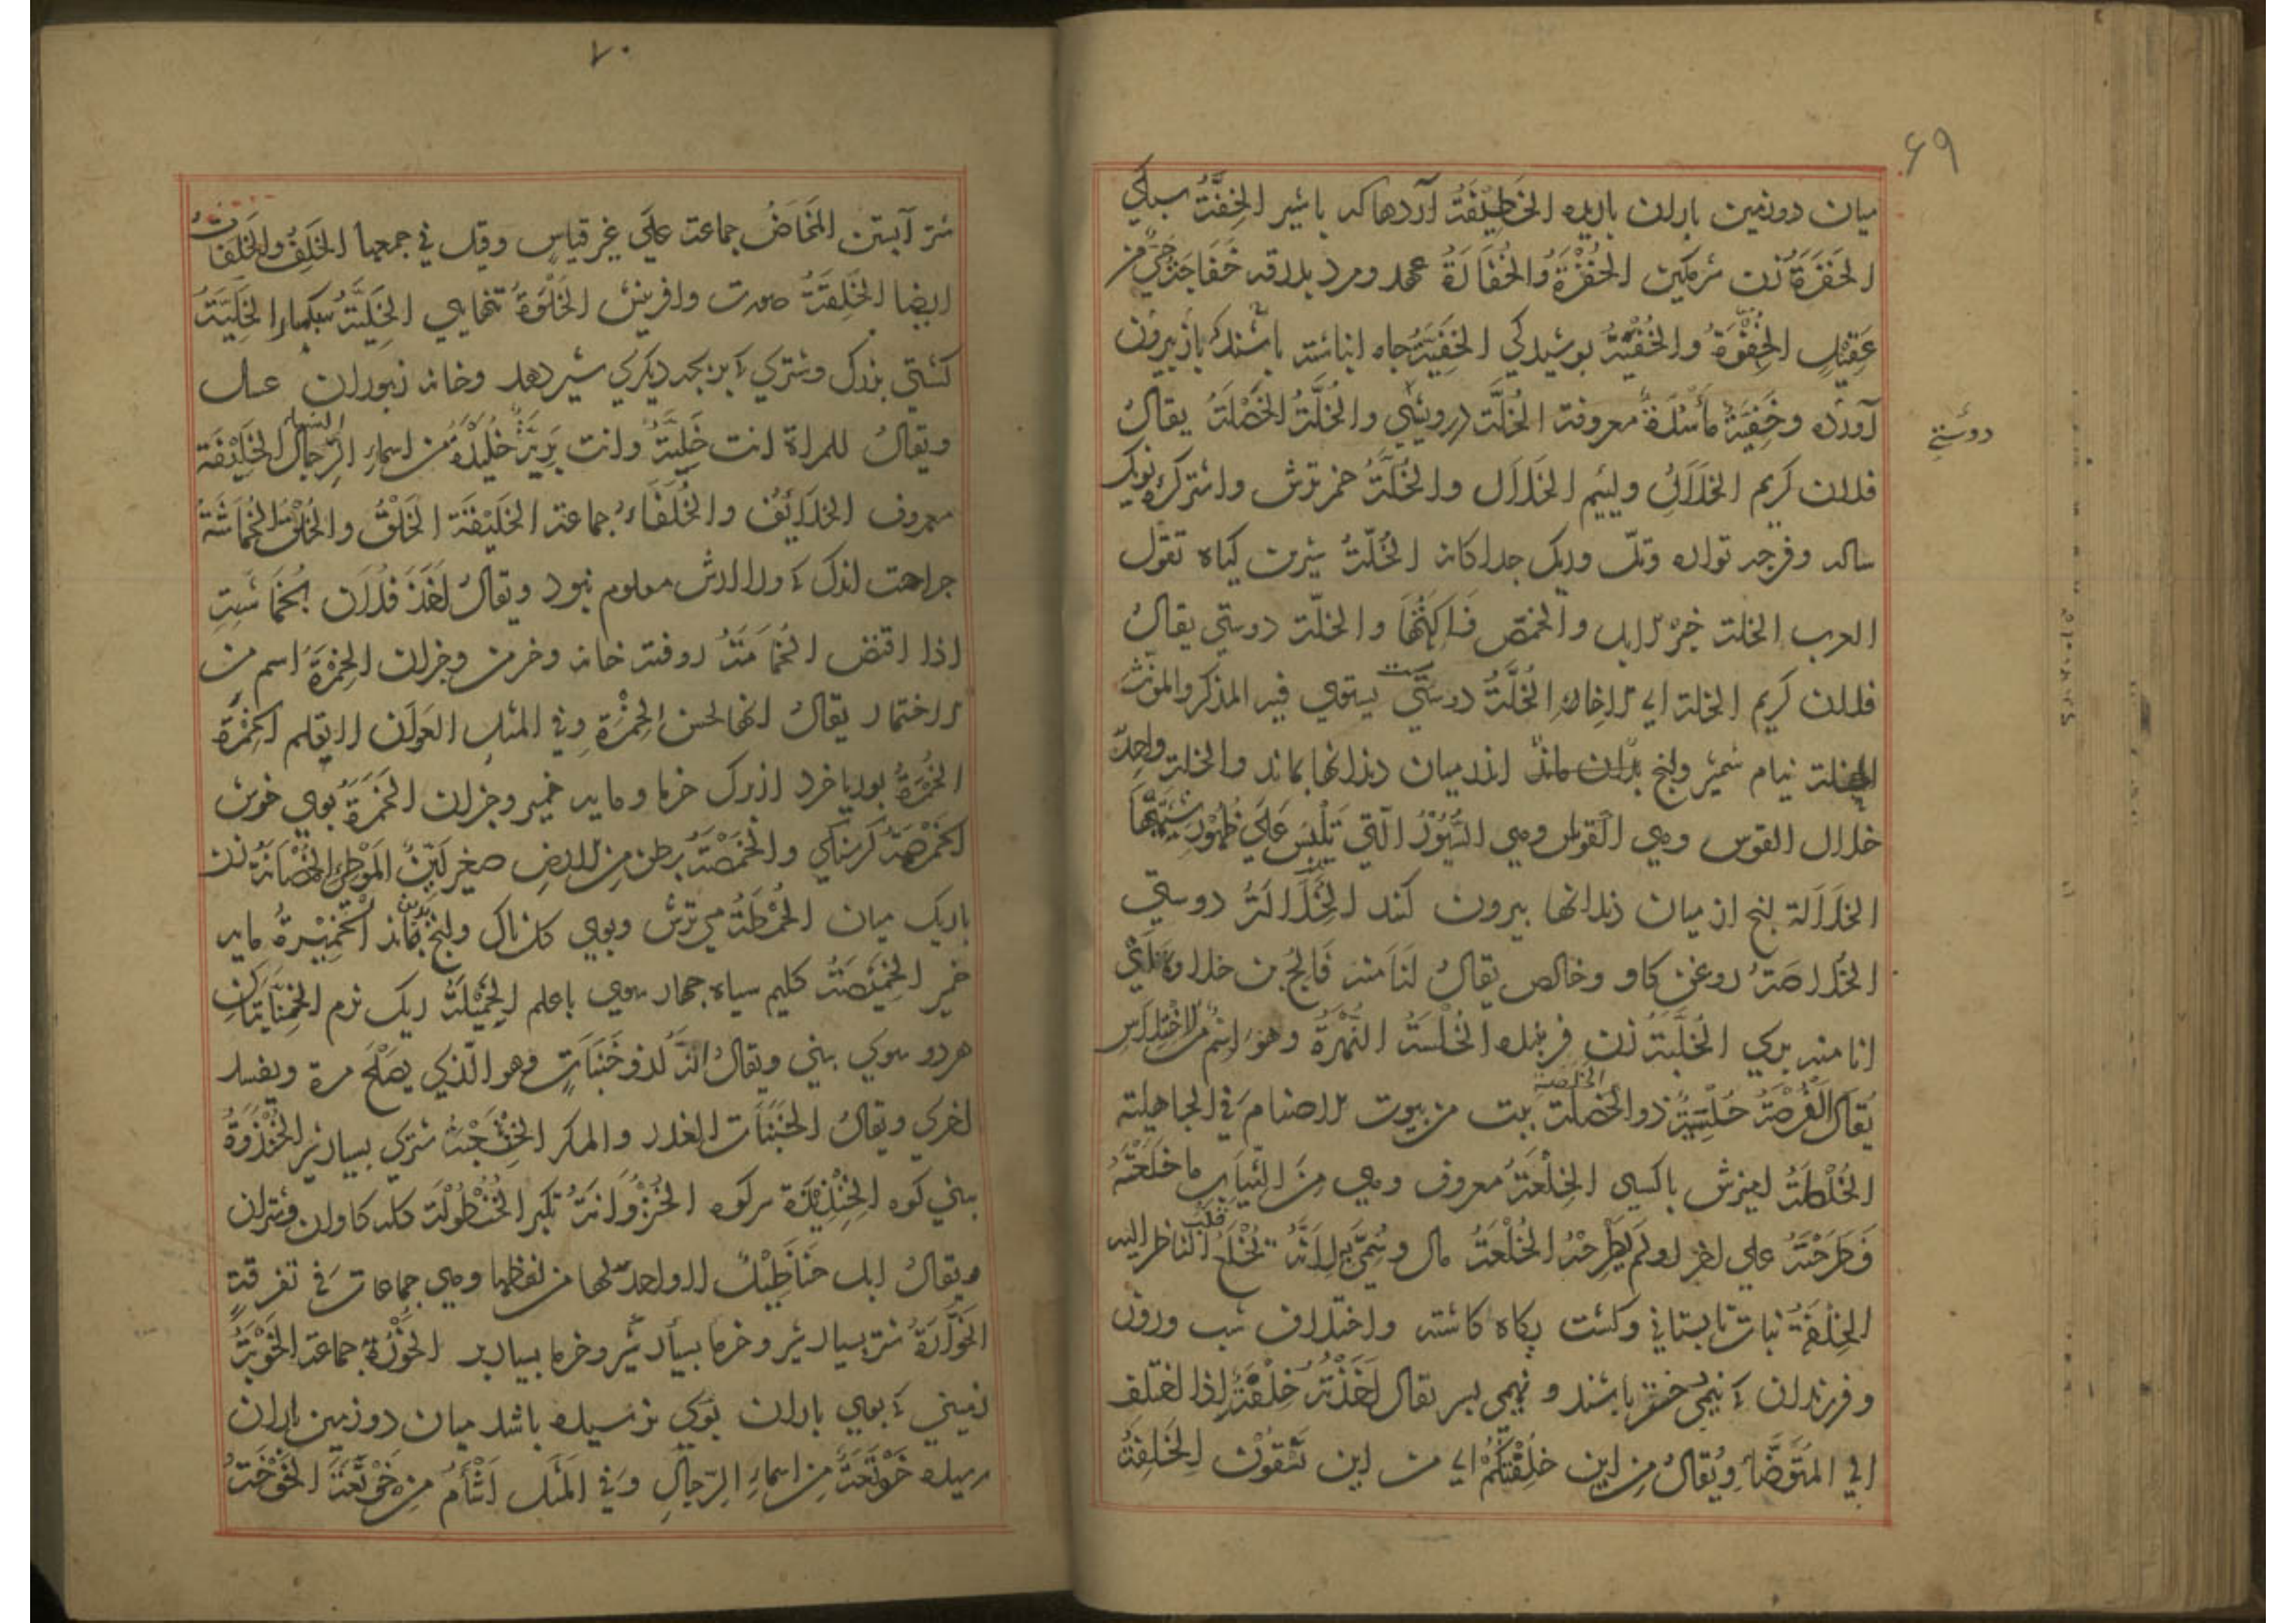 ۶۹
میان دو زمین باران باریده الخَطِیْفَةُ آردهاکه با شیر الخِفَّةُ سبکي
الخَفِرَةُ زن شرمگین الخُفْرَةُ وَالخُفَارَةُ عهد ومزد بدرقه خَفَاجَةُ حَيٌّ من
عُقَیْلٍ الخِفْوَةُ والخُفْیَةُ پوشیدگي الخَفِیَّةُ چاه انباشته باشند که باز بیرون
آورده وخَفِیَّةُ مَأْسَدَةٌ معروفة الخَلَّة درویشي والخَلَّةُ الخَصْلَةُ یقالُ
دوستي
فلان کریم الخَلَالِ ولئیم الخلال والخَلَّةُ خمر ترش واشتر کره نریک
ساله وفرجه تواره وتک وریک جداکانه الخُلَّةُ شیرین کیاه تقول
العرب الخلة خبز الابل والحمض فَاکِهَتُهَا والخلّة دوستي یقالُ
فلان کریم الخلة اي الاخاء الخُلَّةُ دوست یستوي فیه المذکر والمونث
الخلة نیام شمشیر ولنج بدان ماند اندر میان دندانها بماند والخلة واحدة
خلال القوس وهي القوس وهي السُّیُوْرُ الّتي تُلْبَسُ عَلَی ظُهُوْرِ سِیَتِهَا
الخلَالة لنج از میان دندانها بیرون کنند الخِلَالَةُ دوستي
الخُلَاصَةُ روغن کاو وخالص یقالُ انَا مِنه فَالِجُ بن خلاوة اي
انا منه بري الخَلَبَةُ زن فریبنده الخُلْسَةُ النُّهْزَةُ وهوَ اسْمٌ من الاختلاس
یُقَالُ الفُرْصَةُ خُلْسَةٌ ذو الخلصة بیت من بیوت الاصنام في الجاهلیة
الخُلْطَةُ امیزش باکسي الخِلْعَةُ معروف وهي مِنَ الثِّیَابِ ما خَلَعْتَهُ
فَطَرَحْتَهُ علي اخر او لم تَطْرَحْهُ الخُلْعَةُ مال وسُمِّيَ بهِ لِانَّهُ تَخْلَعُ قلب الناظر الیه
الخِلْفَةُ نبات تابستاني وکشت پکاه کاشته واختلاف شب وروز
وفرزندان که نیمي دختر باشند ونیمي پسر یقال اَخَذَتْهُ خِلْفَةٌ اذا اختلف
الي المُتَوَضَّأ ویُقالُ من این خِلْفَتُکُمْ اي من این تَسْتَقُوْنَ الخَلِفَةُ
۷۰
شتر آبستن المَخَاضُ جماعة علَی غیر قیاس وقیل في جمعها الخَلِفُ والخَلِفَات
ایضا الخِلْقَةُ صورت وافرینش الخَلْوَةُ تنهایي الخَلِیَّةُ الخَلِیَّةُ
کشتي بزرک وشتري که بر بچه دیکري شیر دهد وخانه زنبوران عسل
ویقالُ للمراة انت خَلِیَّةٌ وانت بَرِیَّةٌ خُلَیْدَةُ من اسماء الرجال النساء الخَلِیْفَة
معروف الخلَائِفُ والخُلَفَاءُ جماعة الخَلِیْقَة الخَلْقُ والخُلُقُ الخُمَاشَةُ
جراحت اندک که ورا ارش معلوم نبود ویقالُ اَخَذَ فُلَان بِخُمَاشَتِهِ
اذا اقتص الخُمَامَةُ روفته خانه وخرمن وجزان الخِمْرَةُ اسم من
الاختمار یقالُ انها لحسن الخِمْرَةِ وفي المثل العَوَان لا تعلم الخِمْرَةَ
الخُمْرَةُ بوریا خرد از برک خرما ومایه خمیر وجزان الخَمَرَةُ بوي خوش
الخَمْصَةُ کرسنکي والخَمْصَةُ بطن من الارض صغیر لَیِّنُ المَوْطِئ الخُمْصَانَةُ زن
باریک میان الخَمْطَةُ مي ترش وبوي کل تاک ولنج بدان ماند الخَمِیْرَةُ مایه
خمیر الخَمِیْصَةُ کلیم سیاه چهار سوي با علم الخَمِیْلَةُ ریک نرم الخِنَّابَتَانِ
هر دو سوي بیني ویقالُ انّهُ لَذُو خَنَبَاتٍ وهو الّذي یصْلُحُ مرة ویفسد
اخري ویقالُ الخَنَبَات الغدر والمکر الخُنْثَعْبَةُ شتري بسیار شیر الخُنْذُوَةُ
بیني کوه الخِنْذِیْذَة سرکوه الخُنْزُوَانَةُ تکبر الخُنْطُوْلَة کله کاوان وشتران
ویقالُ ابل خَنَاطِیْلُ لا واحد لها من لفظها وهي جماعات في تفرقةٍ
الخَوَّارَةُ شتر بسیار شیر وخرما بسیار بر الخُؤْرَةُ جماعة الخَوْبَةُ
زمیني که بوي باران بوي نرسیده باشد میان دو زمین باران
رسیده خَوْتَعَةُ من اسماء الرّجالِ وفي المَثَل اَشْأَمُ مِنْ خَوْتَعَةَ الخَوْخَةُ